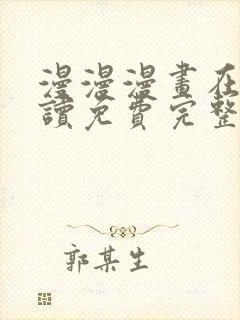 漫漫漫畫在
讀免費完整
郭某生